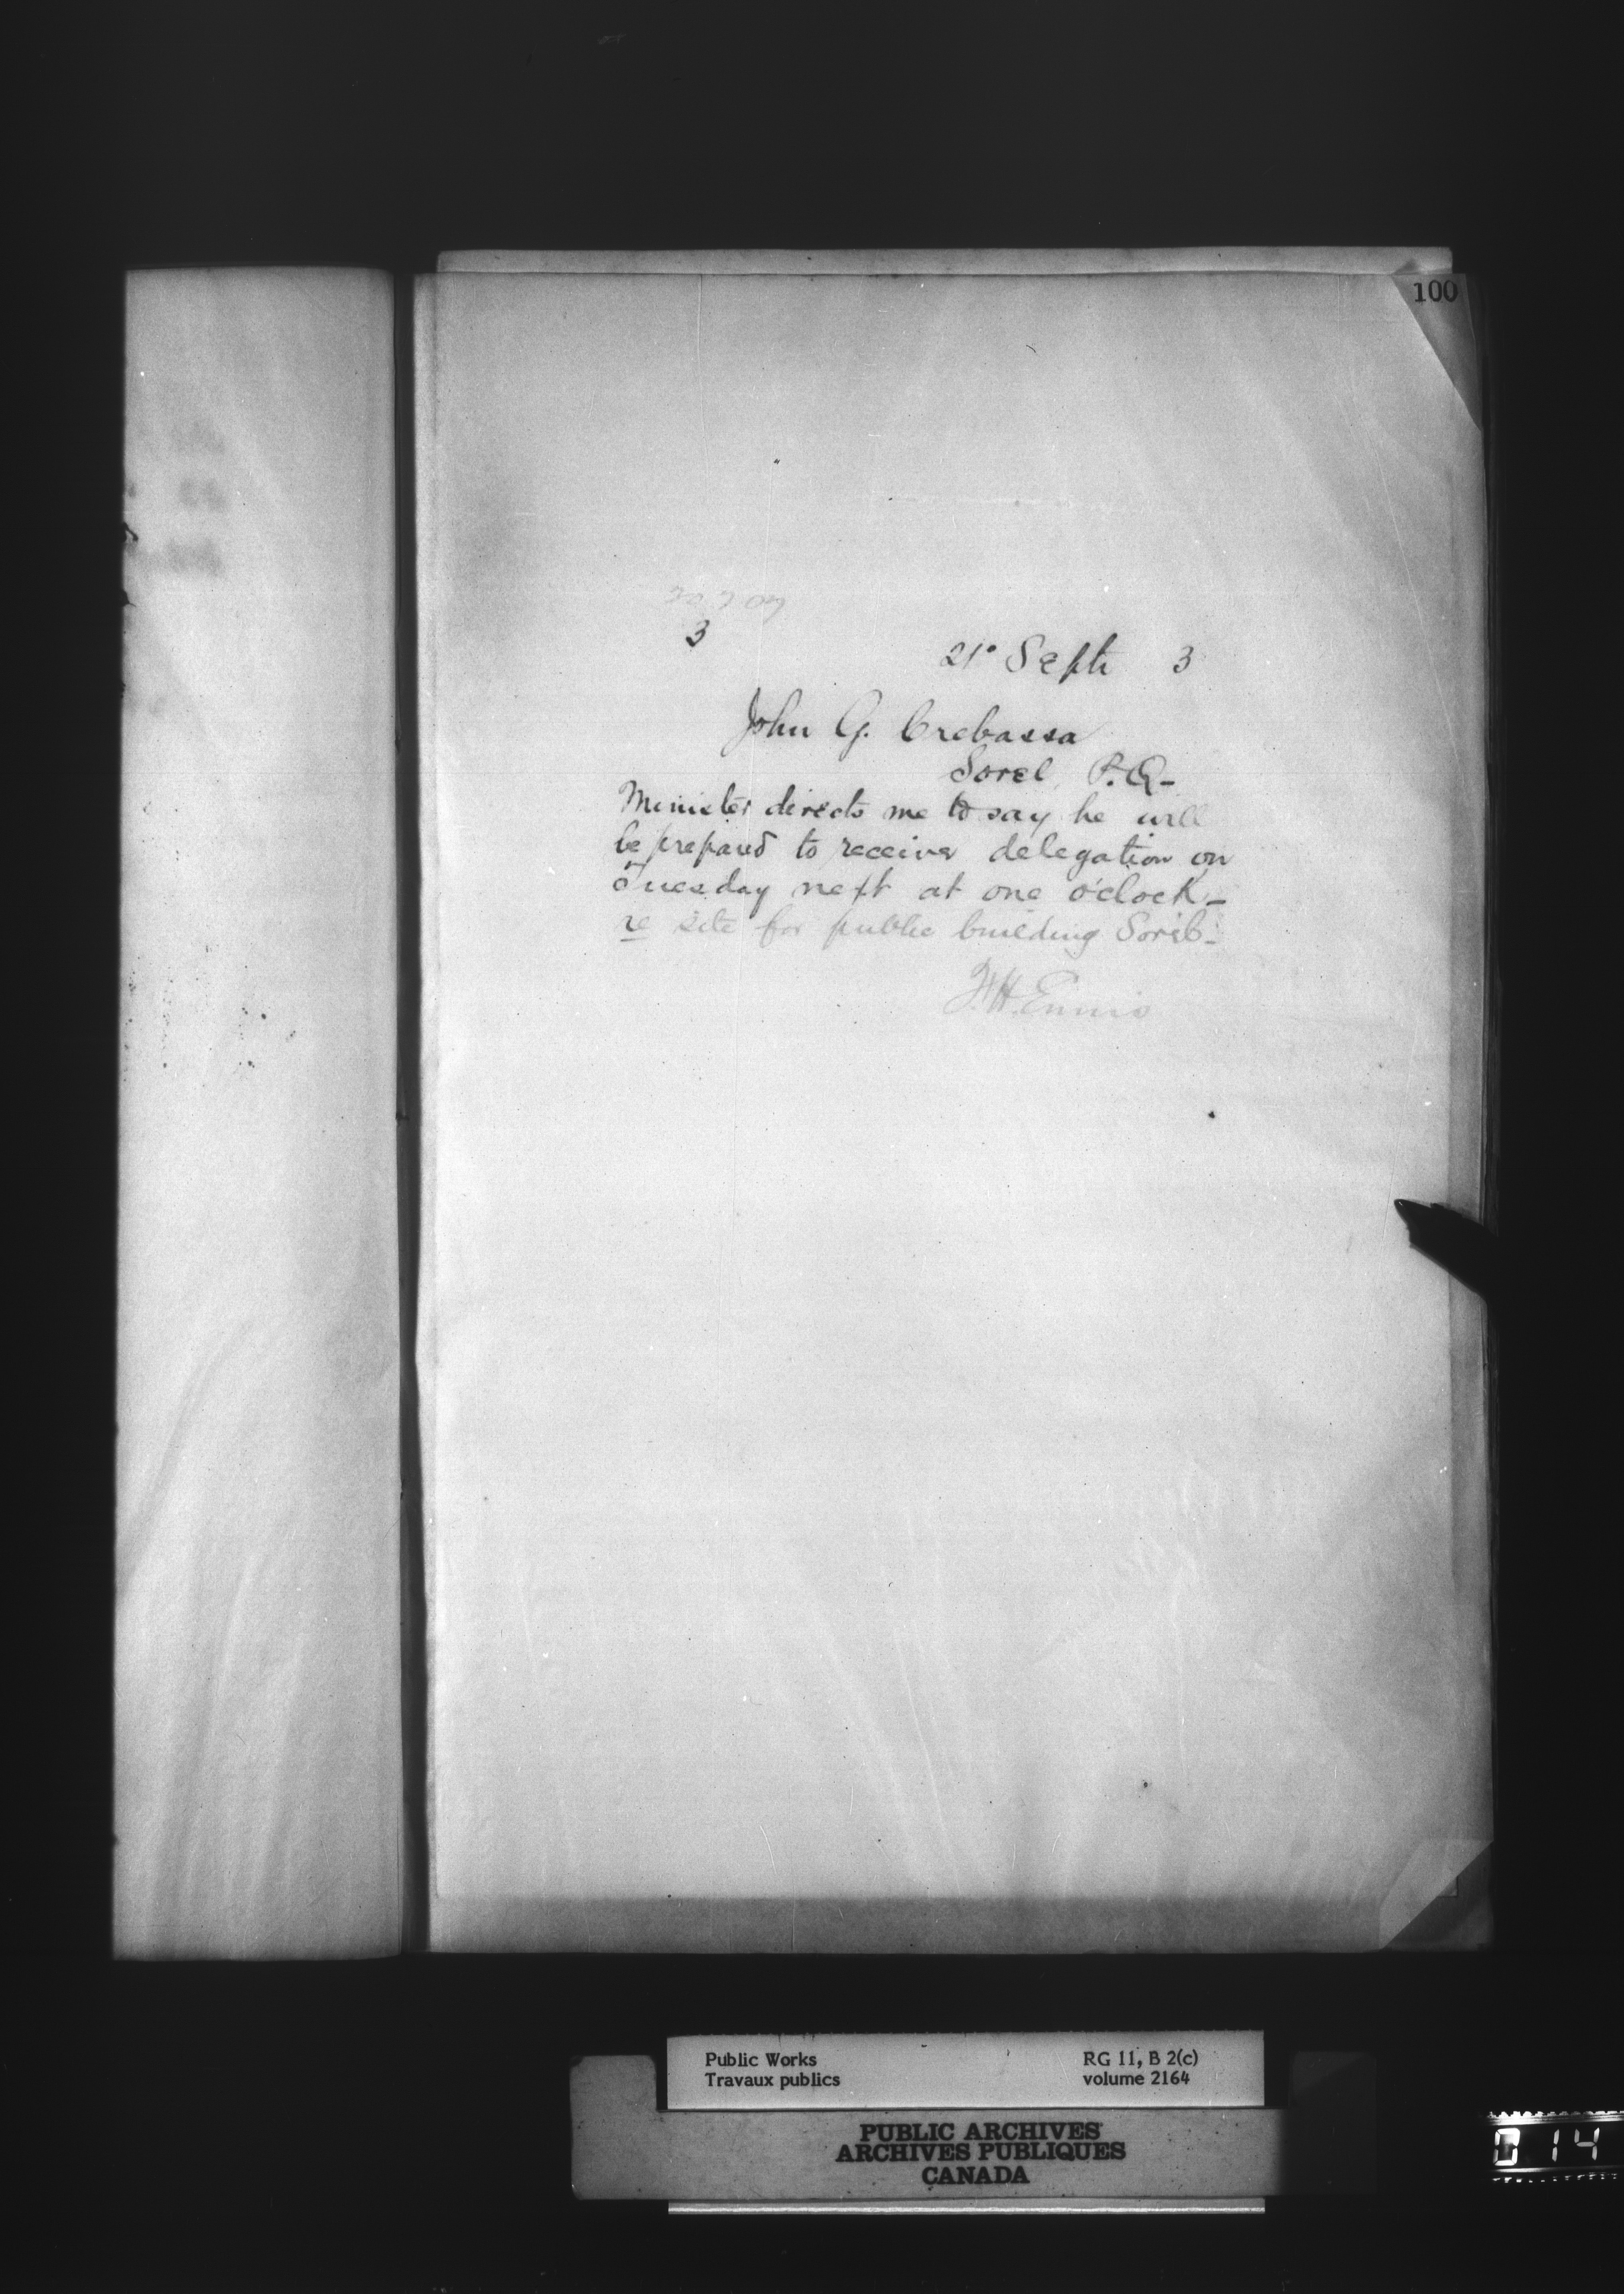 100
3
21° Septr 3
John G. Crebassa
Sorel, P.Q-
Minister directs me to say he will
be prepared to receive delegation on
Tuesday next at one o'clock -
re site for public building Sorel-
F.H. Ennis
Public Works
Travaux publics
RG 11, B 2(c)
volume 2164
PUBLIC ARCHIVES
ARCHIVES PUBLIQUES
CANADA
014